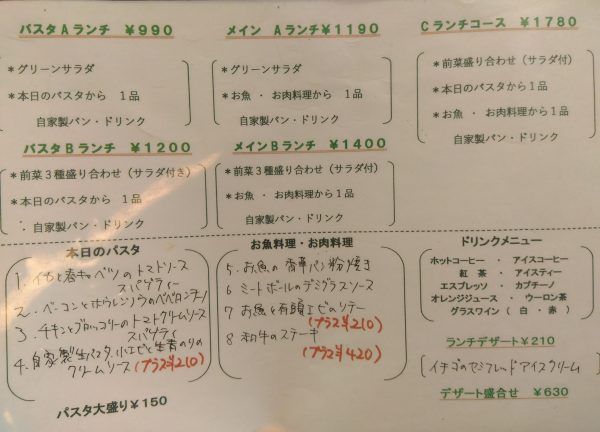 パスタAランチ ¥990
＊グリーンサラダ
＊本日のパスタから 1品
自家製パン・ドリンク
メイン Aランチ¥1190
＊グリーンサラダ
＊お魚 ・ お肉料理から 1品
自家製パン・ドリンク
Cランチコース ¥1780
＊前菜盛り合わせ（サラダ付）
＊本日のパスタから 1品
＊お魚 ・ お肉料理から 1品
自家製パン・ドリンク
パスタBランチ ¥1200
＊前菜3種盛り合わせ（サラダ付き）
＊本日のパスタから 1品
： 自家製パン・ドリンク
メインBランチ ¥1400
＊前菜3種盛り合わせ（サラダ付）
＊お魚 ・ お肉料理から 1品
自家製パン・ドリンク
本日のパスタ
1. イカと春キャベツのトマトソース
スパゲティー
2. ベーコンとホウレンソウのペペロンチーノ
3. チキンとブロッコリーのトマトクリームソース
スパゲティ
4. 自家製生パスタ 小エビと生青のりの
クリームソース (プラス¥210)
パスタ大盛り¥150
お魚料理・お肉料理
5. お魚の香草パン粉焼き
6 ミートボールのデミグラスソース
7 お魚と有頭エビのソテー
(プラス¥210)
8 和牛のステーキ
(プラス¥420)
ドリンクメニュー
ホットコーヒー ・ アイスコーヒー
紅 茶 ・ アイスティー
エスプレッソ ・ カプチーノ
オレンジジュース ・ ウーロン茶
グラスワイン（ 白 ・ 赤）
ランチデザート¥210
イチゴのセミフレッド アイスクリーム
デザート盛合せ ¥630